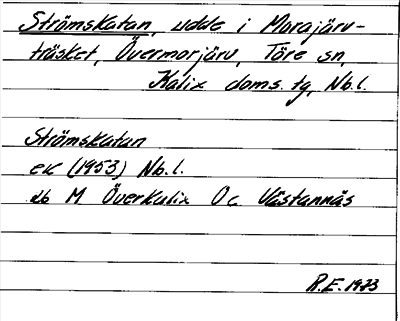 Strömskatan, udde i Morajärv-
träsket, Övermorjärv, Töre sn,
Kalix doms. tg, Nb.l.
Strömskatan
ek (1953) Nb.l.
db M Överkalix Oc Västannäs
R.E. 1973